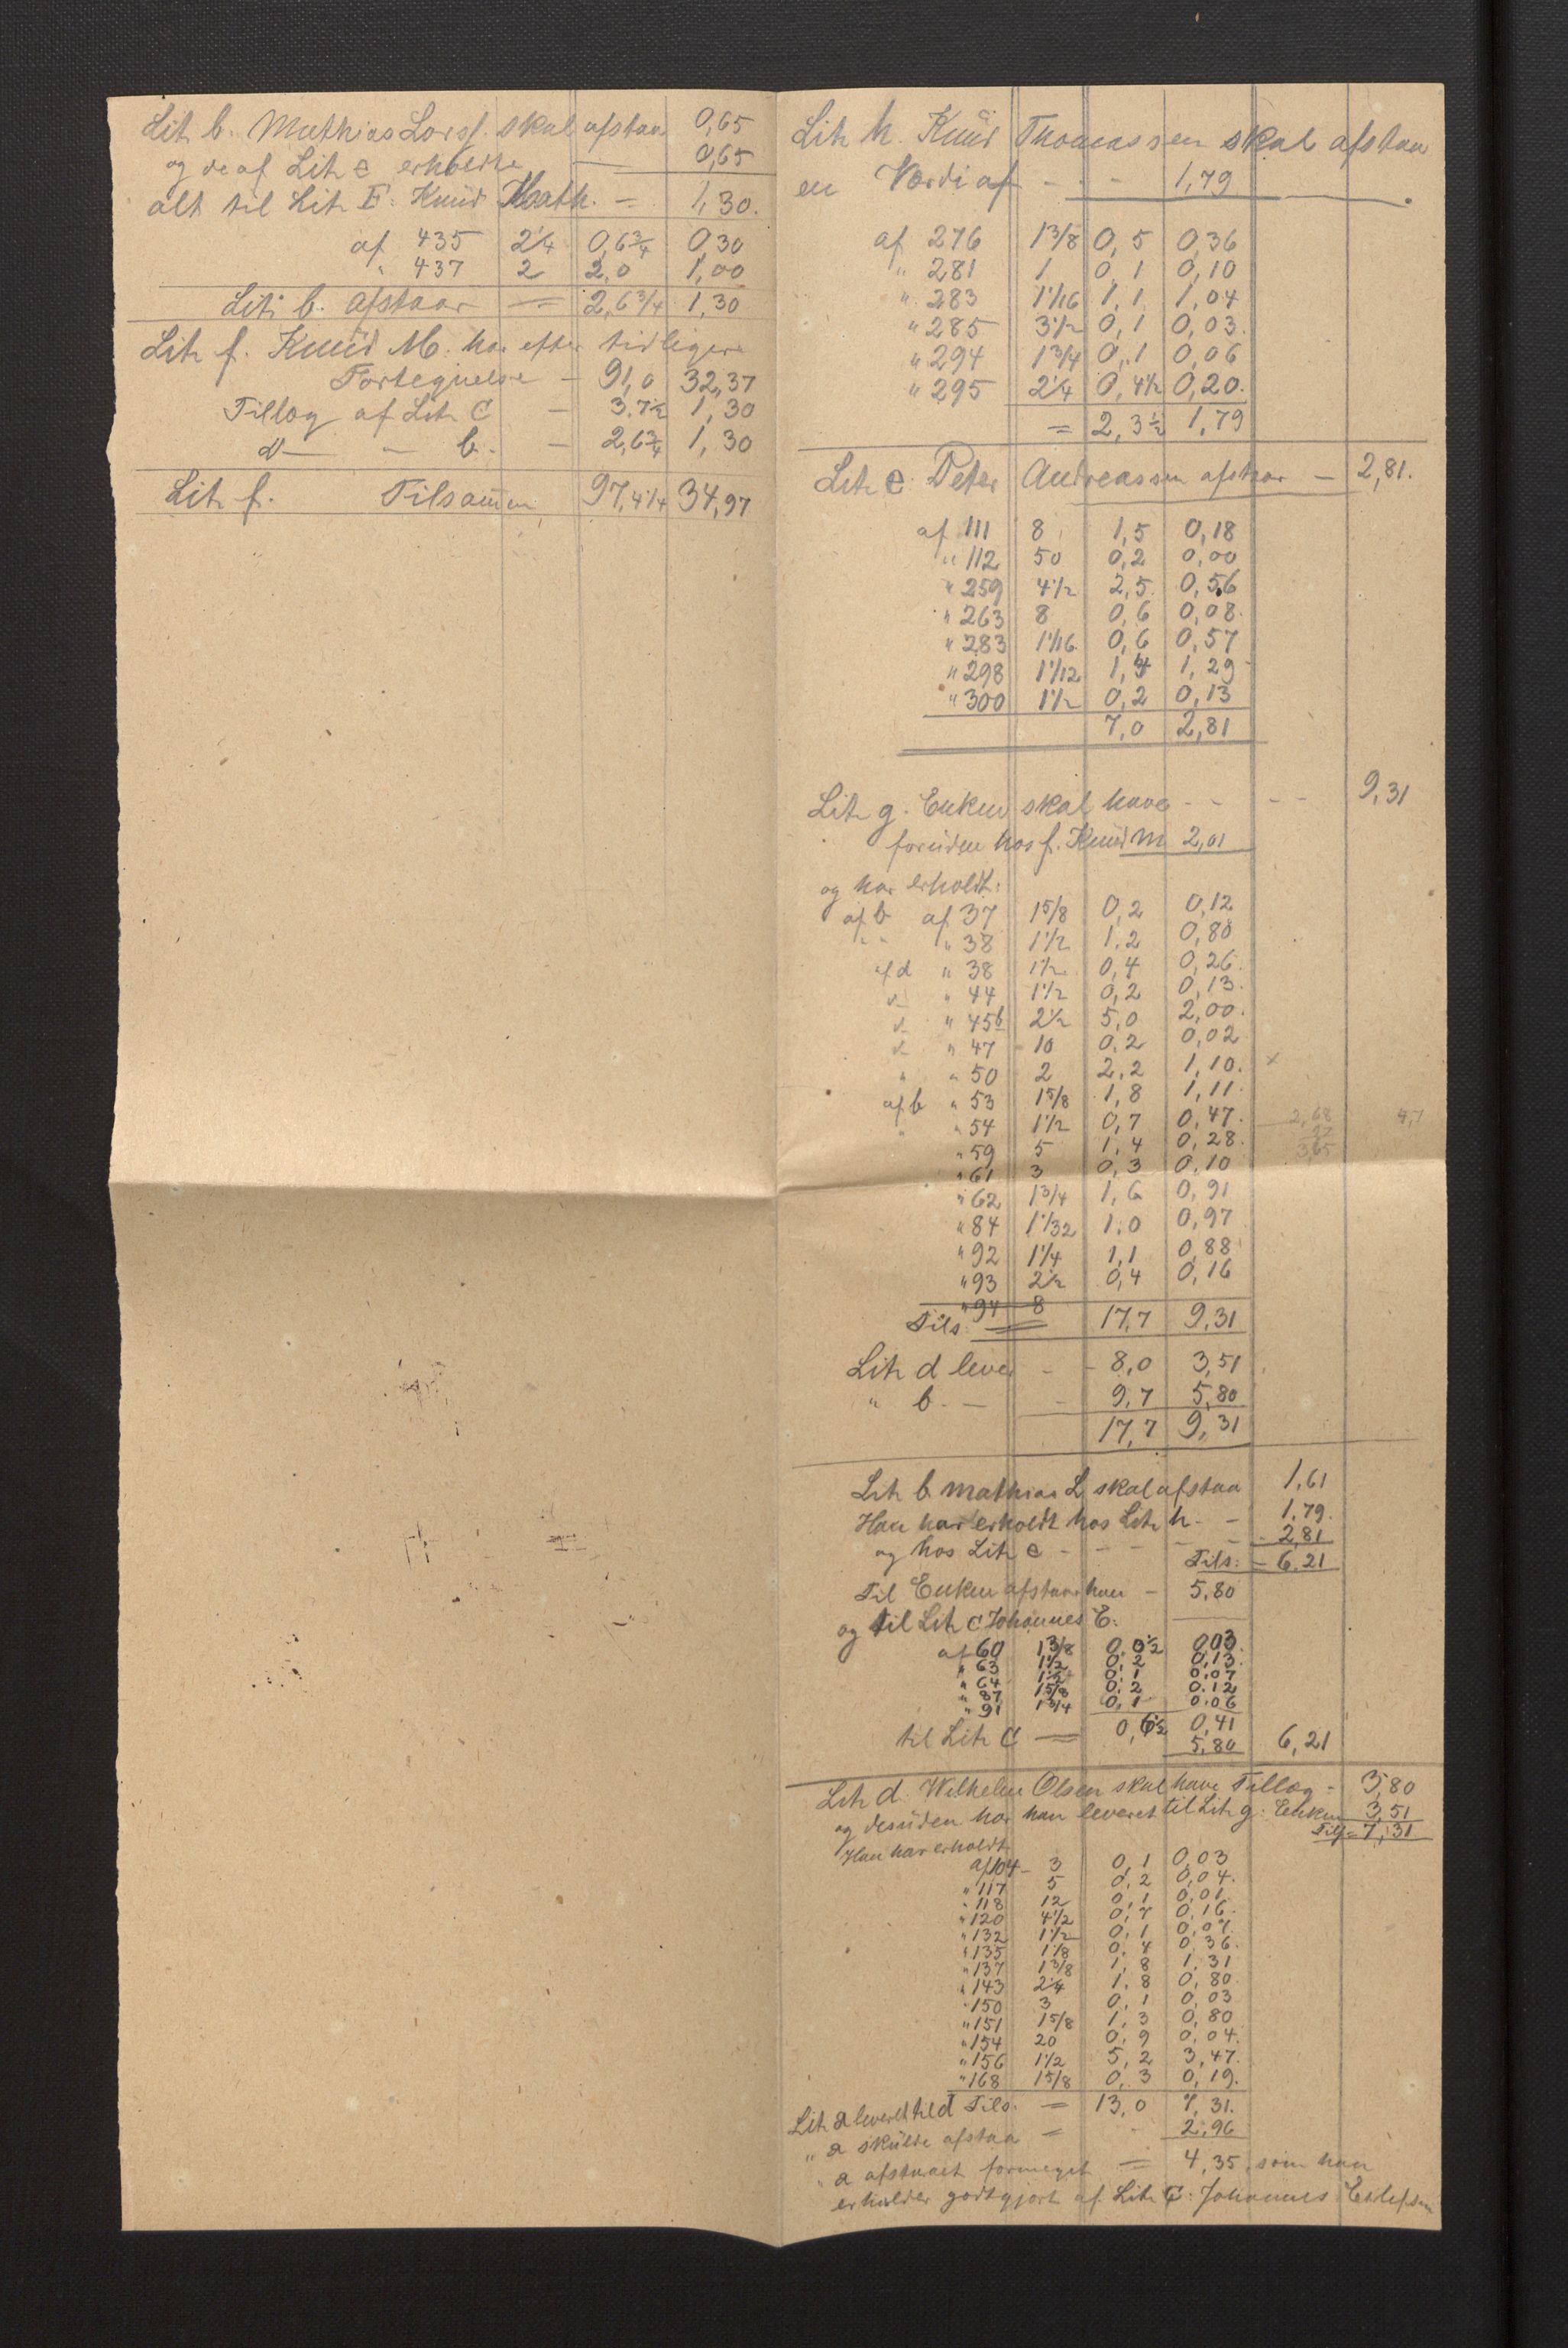 Lit b. Mathias Lorsf. skal afstaa 0,65
og de af Lit e erholdte — 0,65
alt til Lit F. Knud Math. — 1,30.
af 435 2¼ 0,6¾ 0,30
" 437 2 2,0 1,00
Lit b. afstaar = 2,6¾ 1,30
Lit f. Knud M. har efter tidligere
Fortegnelse - 91,0 32,37
Tillæg af Lit C - 3.7½ 1,30
d— — b. - 2,6¾ 1,30
Lit f. Tilsammen 97,4¼ 34,97
Lit h. Knud Thomassen skal afstaa
en Værdi af - - - 1,79
af 276 1⅜ 0,5 0,36
" 281 1 0,1 0,10
" 283 1 1/16 1,1 1,04
" 285 3½ 0,1 0,03.
" 294 1¾ 0,1 0,06
" 295 2¼ 0,4½ 0,20.
= 2,3½ 1,79
Lit e Peter Andreassen afstaar — 2,81.
af 111 8 1,5 0,18
" 112 50 0,2 0,00
" 259 4½ 2,5 0,56
" 263 8 0,6 0,08.
" 283 1 1/16 0,6 0,57
" 298 1 1/12 1,4 1,29
" 300 1½ 0,2 0,13
7,0 2,81
Lit g. Enken skal have - - - - 9,31
foruden hos f. Knud M 2,01
og har erholdt:
af b af 37 1⅝ 0,2 0,12
" " " 38 1½ 1,2 0,80
af d " 38 1½ 0,4 0,26.
d " 44 1½ 0,2 0,13.
d " 45b 2½ 5,0 2,00.
d " 47 10 0,2 0,02
" " 50 2 2,2 1,10. x
af b " 53 1⅝ 1,8 1,11
" " 54 1½ 0,7 0,47. 2,68 4,7
" 59 5 1,4 0,28. 97
" 61 3 0,3 0,10 3,65
" 62 1¾ 1,6 0,91
" 84 1 1/32 1,0 0,97
" 92 1¼ 1,1 0,88
" 93 2½ 0,4 0,16
" 94 8
Tils. = 17,7 9,31
Lit d lever - - 8,0 3,51
" b. — - 9,7 5,80
17,7 9,31
Lit b Mathias L skal afstaa 1,61
Han har erholdt hos Lit h. - 1,79.
og hos Lit e - - - - - 2,81
Tils: - 6,21
Til Enken afstaar han — 5,80
og til Lit C Johannes E.
af 60 1⅜ 0,0½ 0,03.
" 63 1½ 0,2 0,13.
" 64 1½ 0,1 0,07
" 87 1⅝ 0,2 0,12
" 91 1¾ 0,1 0,06
til Lit C = 0,6½ 0,41
5,80 6,21
Lit d. Wilhelm Olsen skal have Tillæg - 3,80
og desuden har han leveret til Lit g. Enken 3,51
Tils = 7,31
Han har erholdt
af 104 - 3 0,1 0,03
" 117 5 0,2 0,04.
" 118 12 0,1 0,01.
" 120 4½ 0,7 0,16.
" 132 1½ 0,1 0,07.
" 135 1⅛ 0,4 0,36.
" 137 1⅜ 1,8 1,31
" 143 2¼ 1,8 0,80.
" 150 3 0,1 0,03
" 151 1⅝ 1,3 0,80
" 154 20 0,9 0,04.
" 156 1½ 5,2 3,47.
" 168 1⅝ 0,3 0,19.
Lit a leveret til d Tils. = 13,0 7,31.
" a skulde afstaa = - 2,96
" a afstaaet formeget = 4,35, som han
erholder godtgjort af Lit C: Johannes Ellefsen